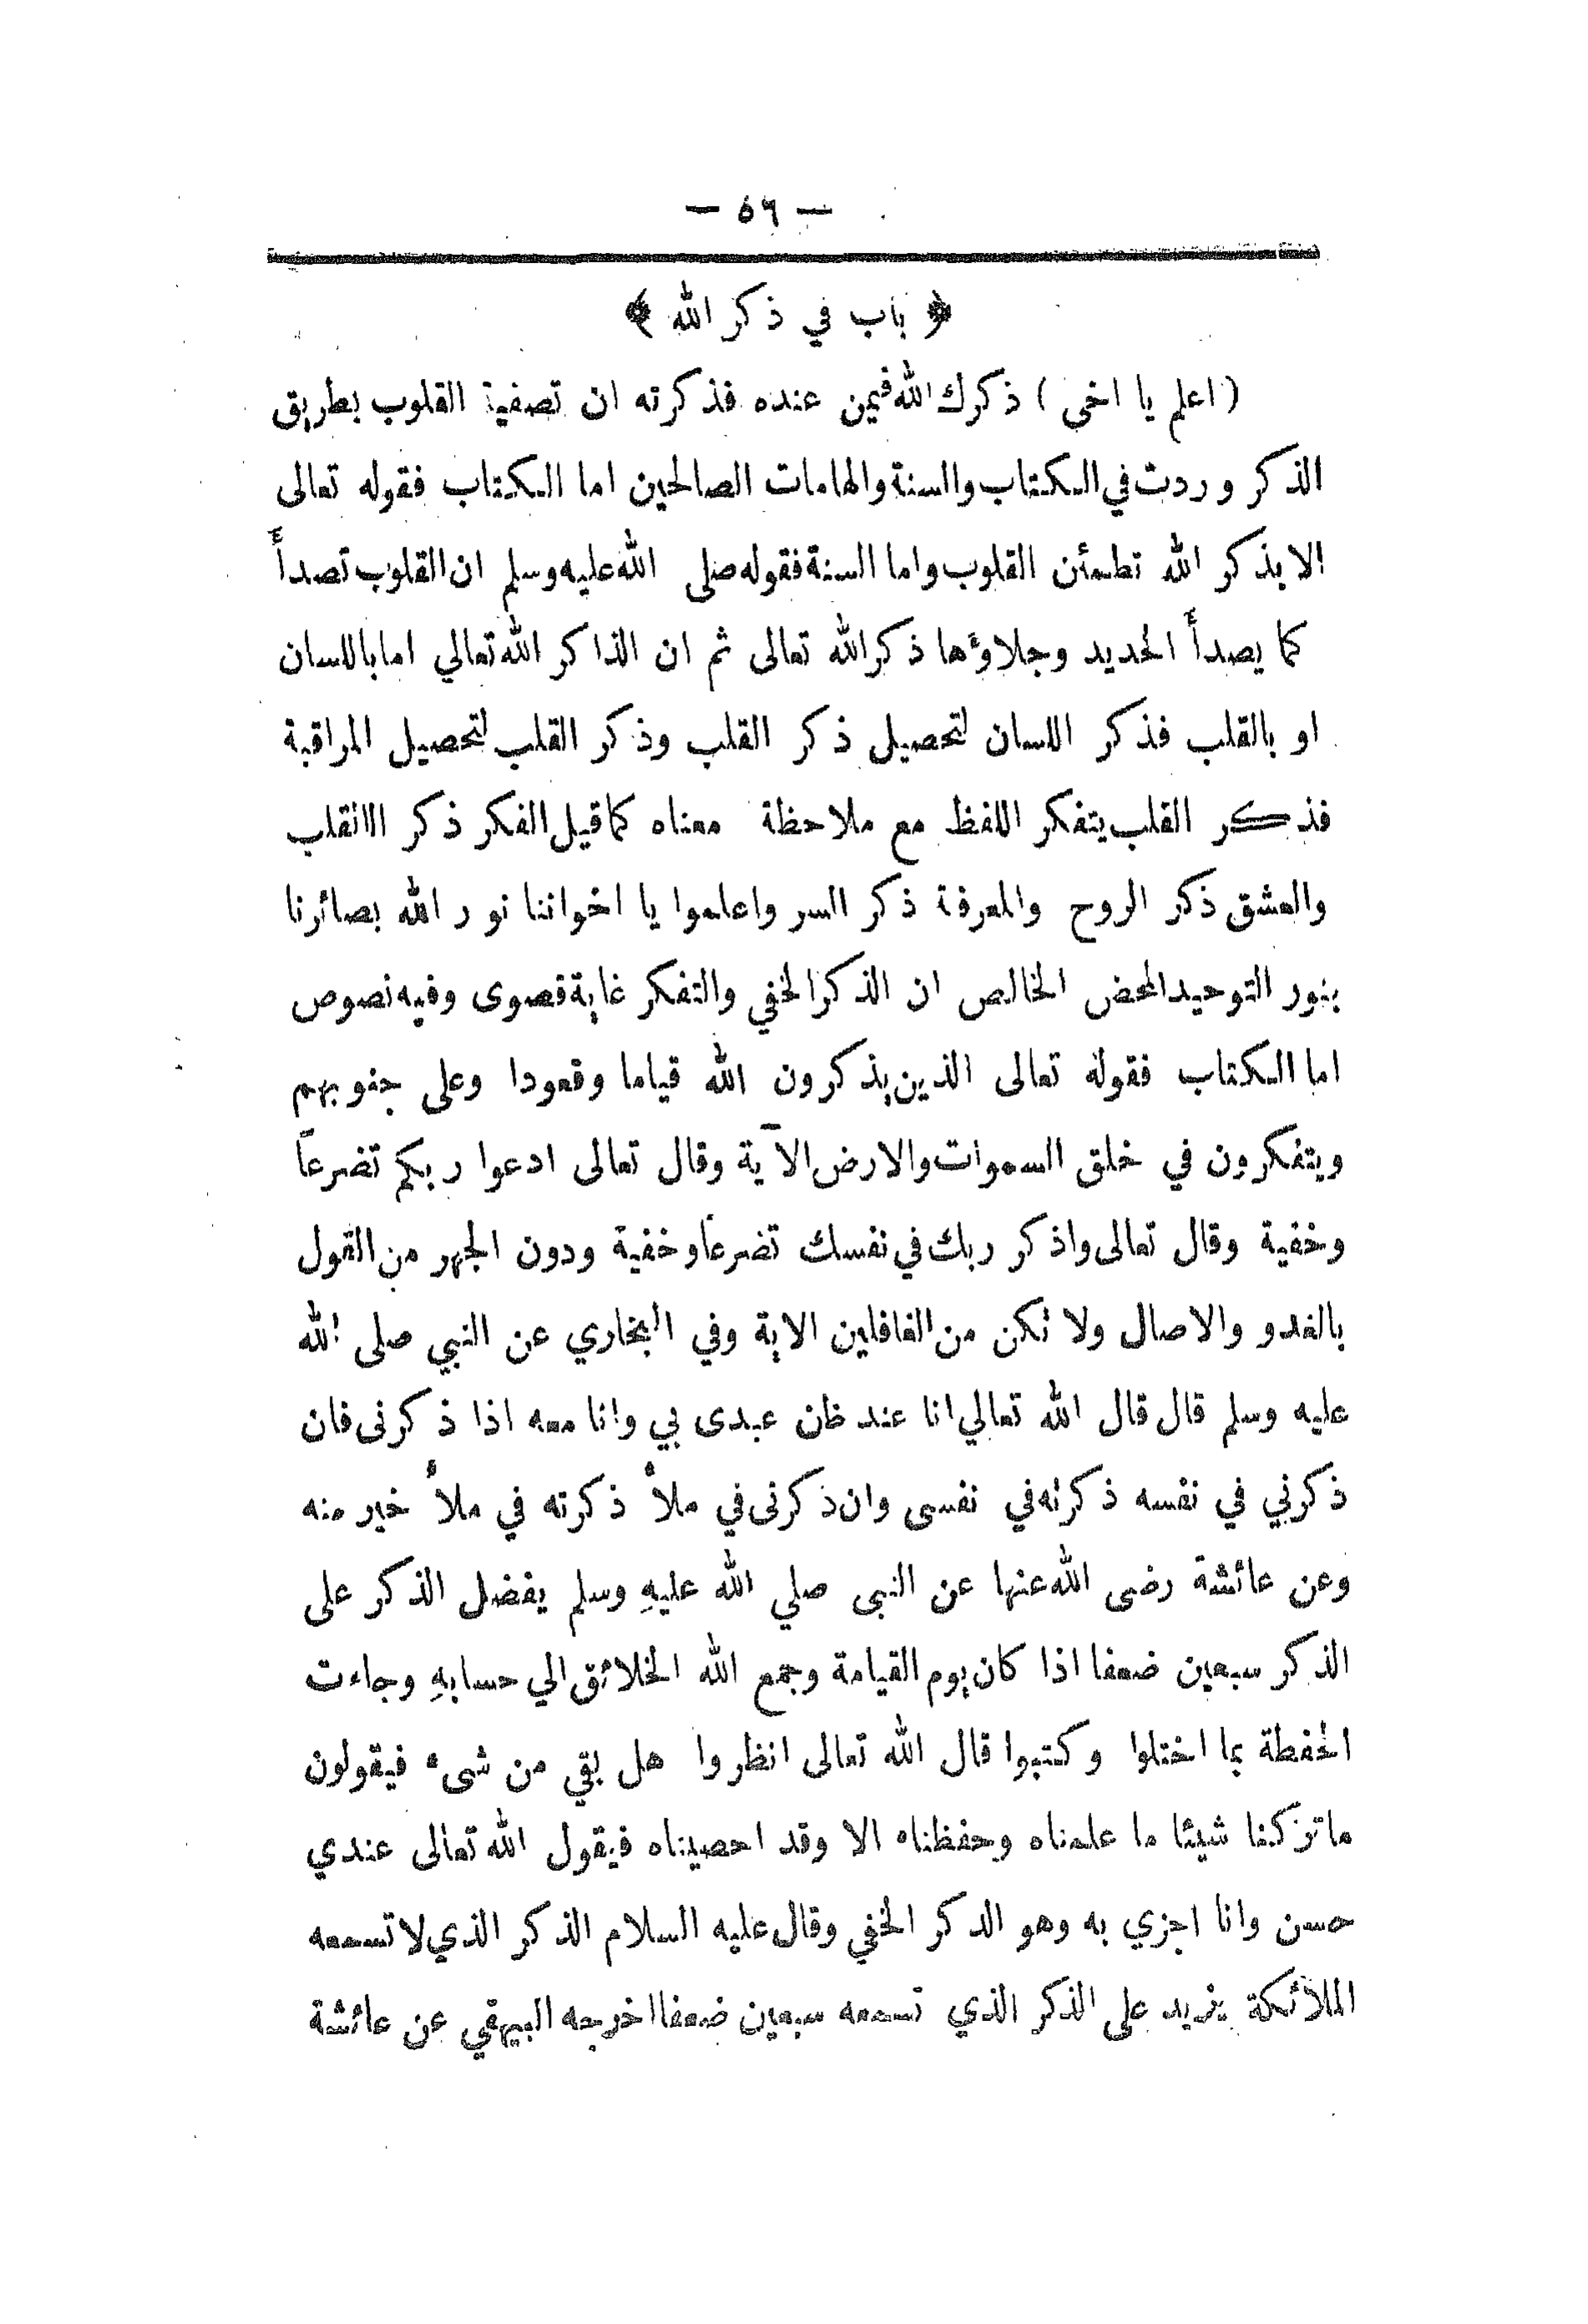 — ٥٦ —
﴿ باب في ذكر الله ﴾
( اعلم يا اخى ) ذكرك الله فيمن عنده فذكرته ان تصفية القلوب بطريق
الذكر وردت في الكتاب والسنة والهامات الصالحين اما الكتاب فقوله تعالى
الا بذكر الله تطمئن القلوب واما السنة فقوله صلى الله عليه وسلم ان القلوب تصدأ
كما يصدأ الحديد وجلاؤها ذكر الله تعالى ثم ان الذاكر الله تعالي اما باللسان
او بالقلب فذكر اللسان لتحصيل ذكر القلب وذكر القلب لتحصيل المراقبة
فذكر القلب يتفكر اللفظ مع ملاحظة معناه كما قيل الفكر ذكر الالقلب
والعشق ذكر الروح والمعرفة ذكر السر واعلموا يا اخواننا نور الله بصائرنا
بنور التوحيد المحض الخالص ان الذكر الخفي والتفكر غاية قصوى وفيه نصوص
اما الكتاب فقوله تعالى الذين يذكرون الله قياما وقعودا وعلى جنوبهم
ويتفكرون في خلق السموات والارض الآية وقال تعالى ادعوا ربكم تضرعاً
وخفية وقال تعالى واذكر ربك في نفسك تضرعاً وخفية ودون الجهر من القول
بالغدو والاصال ولا تكن من الغافلين الاية وفي البخاري عن النبي صلى الله
عليه وسلم قال قال الله تعالي انا عند ظن عبدى بي وانا معه اذا ذكرنى فان
ذكرني في نفسه ذكرته في نفسى وان ذكرنى في ملأ ذكرته في ملأ خير منه
وعن عائشة رضى الله عنها عن النبى صلي الله عليهِ وسلم يفضل الذكر على
الذكر سبعين ضعفا اذا كان يوم القيامة وجمع الله الخلائق الي حسابهِ وجاءت
الحفطة بما اختلوا وكتبوا قال الله تعالى انظروا هل بقي من شىء فيقولون
ما تركنا شيئا ما علمناه وحفظناه الا وقد احصيناه فيقول الله تعالى عندي
حسن وانا اجزي به وهو الدكر الخفي وقال عليه السلام الذكر الذي لا تسمعه
الملائكة يزيد على الذكر الذي تسمعه سبعين ضعفا اخرجه البيهقي عن عائشة